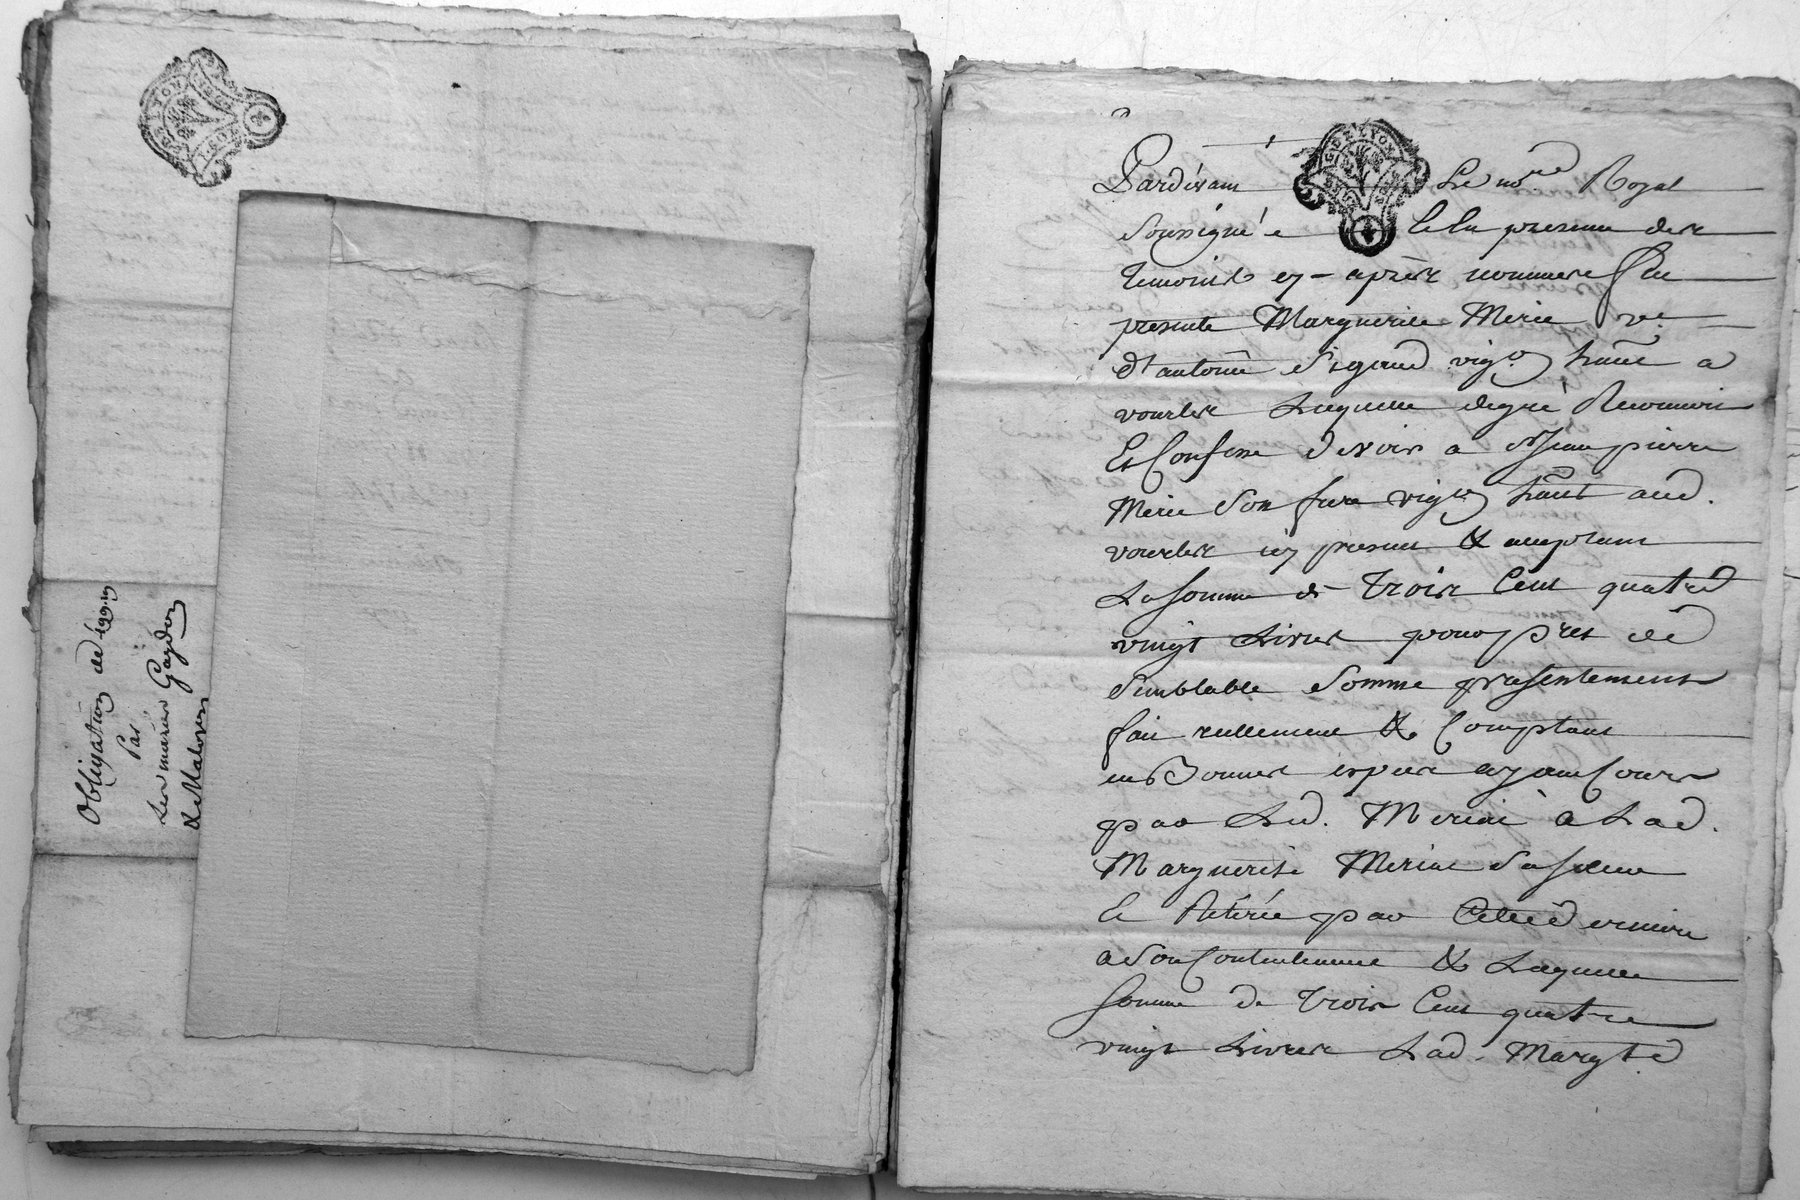 Obligation de 199.ll
Par
Les mariés Gayden
& Maloyen
G. DE LYON
G. DE LYON
Pardevant Le nore Royal
Soussigné e Et En presence des
temoins cy-après nommes fut
presente Marguerite Merie ve
d'antoine Sigaud vigon habte a
vourles Laquelle degré Reconnoit
Et Confesse devoir a Sr Jean pierre
Merie Son frere vigon habt aud.
vourles icy present & acceptant
La somme de Trois Cent quatre
vingt Livres pour prest de
Semblable Somme presentement
fait reellement & Comptant
en Bonnes especes ayant Cours
par Led. Merie à Lad.
Marguerite Merie Sa sœur
Et Retirée par Cette derniere
a Son Contentement & Laquelle
Somme de Trois Cent quatre
vingt Livres Lad. Margte